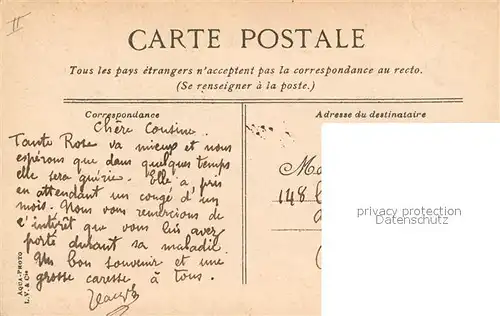 II
CARTE POSTALE
Tous les pays étrangers n'acceptent pas la correspondance au recto.
(Se renseigner à la poste.)
Correspondance
Adresse du destinataire
Chère Cousine.
Tante Rose va mieux et nous
espérons que dans quelques temps
elle sera guérie. Elle a pris
en attendant un congé d'un
mois. Nous vous remercions de
l'intérêt que vous lui avez
porté durant sa maladie
Un bon souvenir et une
grosse caresse à tous.
148
privacy protection
Datenschutz
AQUA-PHOTO
L. V. & Cie